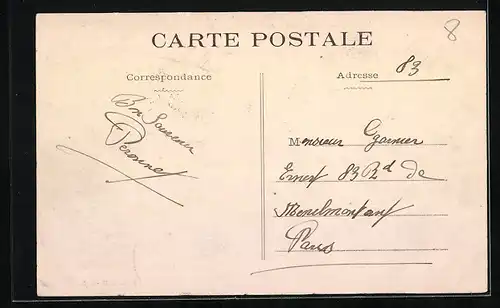 8
CARTE POSTALE
Correspondance
Bon Souvenir
Peronnet
Adresse 83
Monsieur Garnier
Ernest 83 Bd de
Menilmontant
Paris